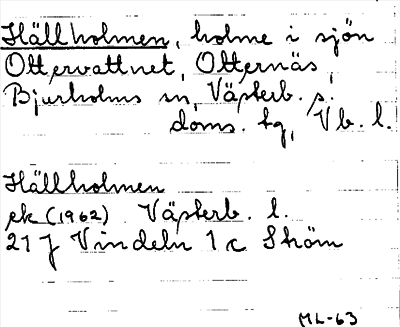 Hällholmen, holme i sjön
Ottervattnet, Otternäs,
Bjurholms sn, Västerb. s.
doms. tg, Vb. l.
Hällholmen
ek (1962) Västerb. l.
21 J Vindeln 1 c Ström
ML-63